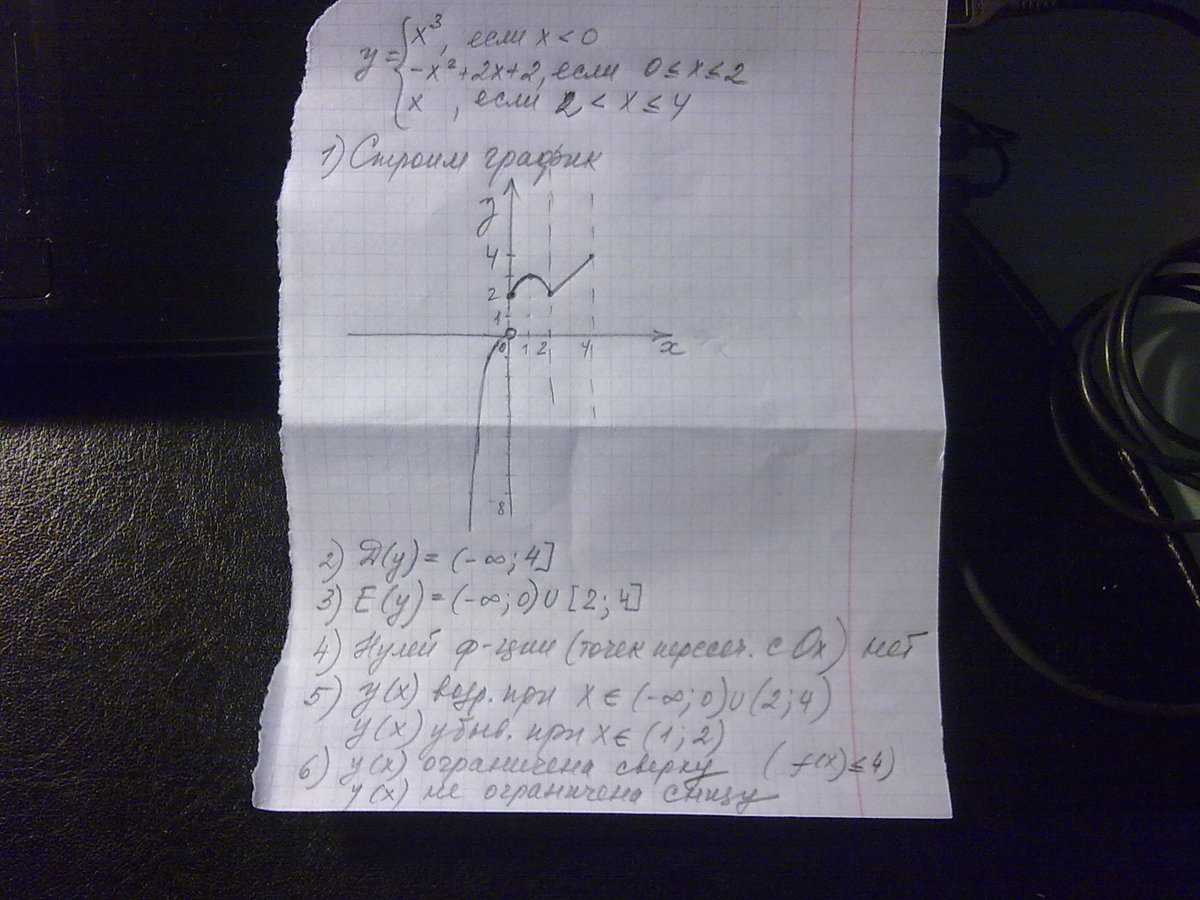 y = { x³, если x < 0
-x² + 2x + 2, если 0 ≤ x ≤ 2
x , если 2 < x ≤ 4
1) Строим график
y
4
2
1
0 1 2 4 x
-8
2) D(y) = (-∞; 4]
3) E(y) = (-∞; 0) ∪ [2; 4]
4) Нулей ф-ции (точек пересеч. с Ox) нет
5) y(x) возр. при x ∈ (-∞; 0) ∪ (2; 4)
y(x) убыв. при x ∈ (1; 2)
6) y(x) ограничена сверху (f(x) ≤ 4)
y(x) не ограничена снизу